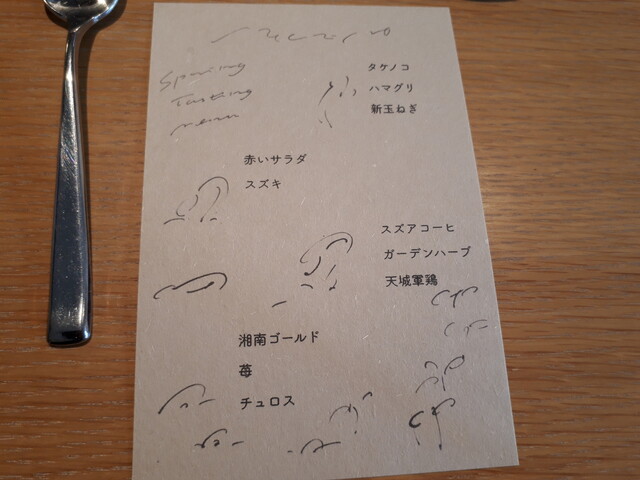 Spring
Tasting
menu
タケノコ
ハマグリ
新玉ねぎ
赤いサラダ
スズキ
スズアコーヒ
ガーデンハーブ
天城軍鶏
湘南ゴールド
苺
チュロス